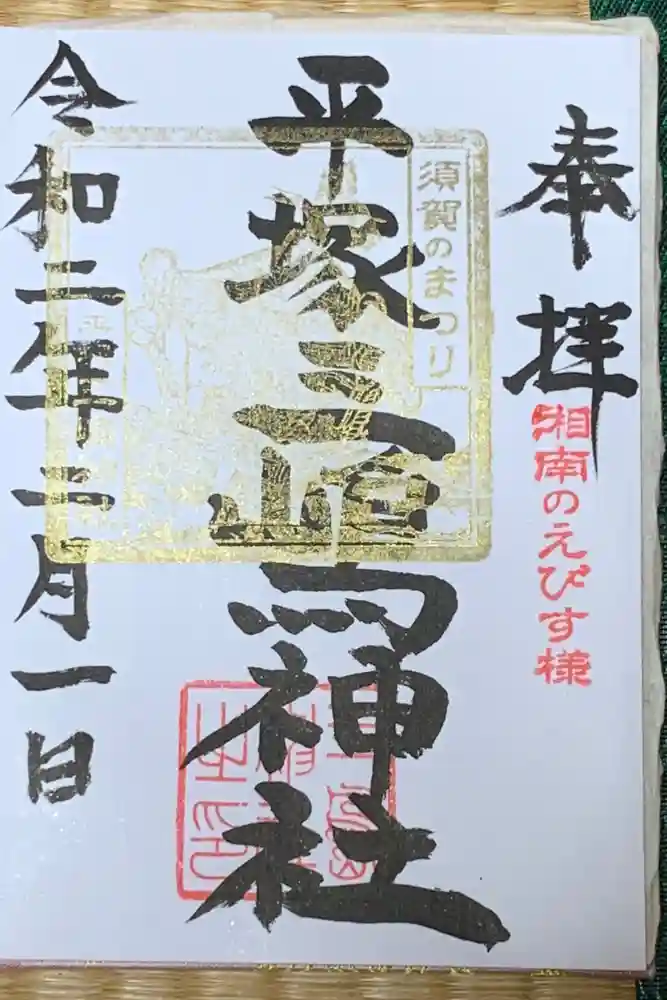 奉拝
湘南のえびす様
須賀のまつり
平塚三嶋神社
令和二年二月一日